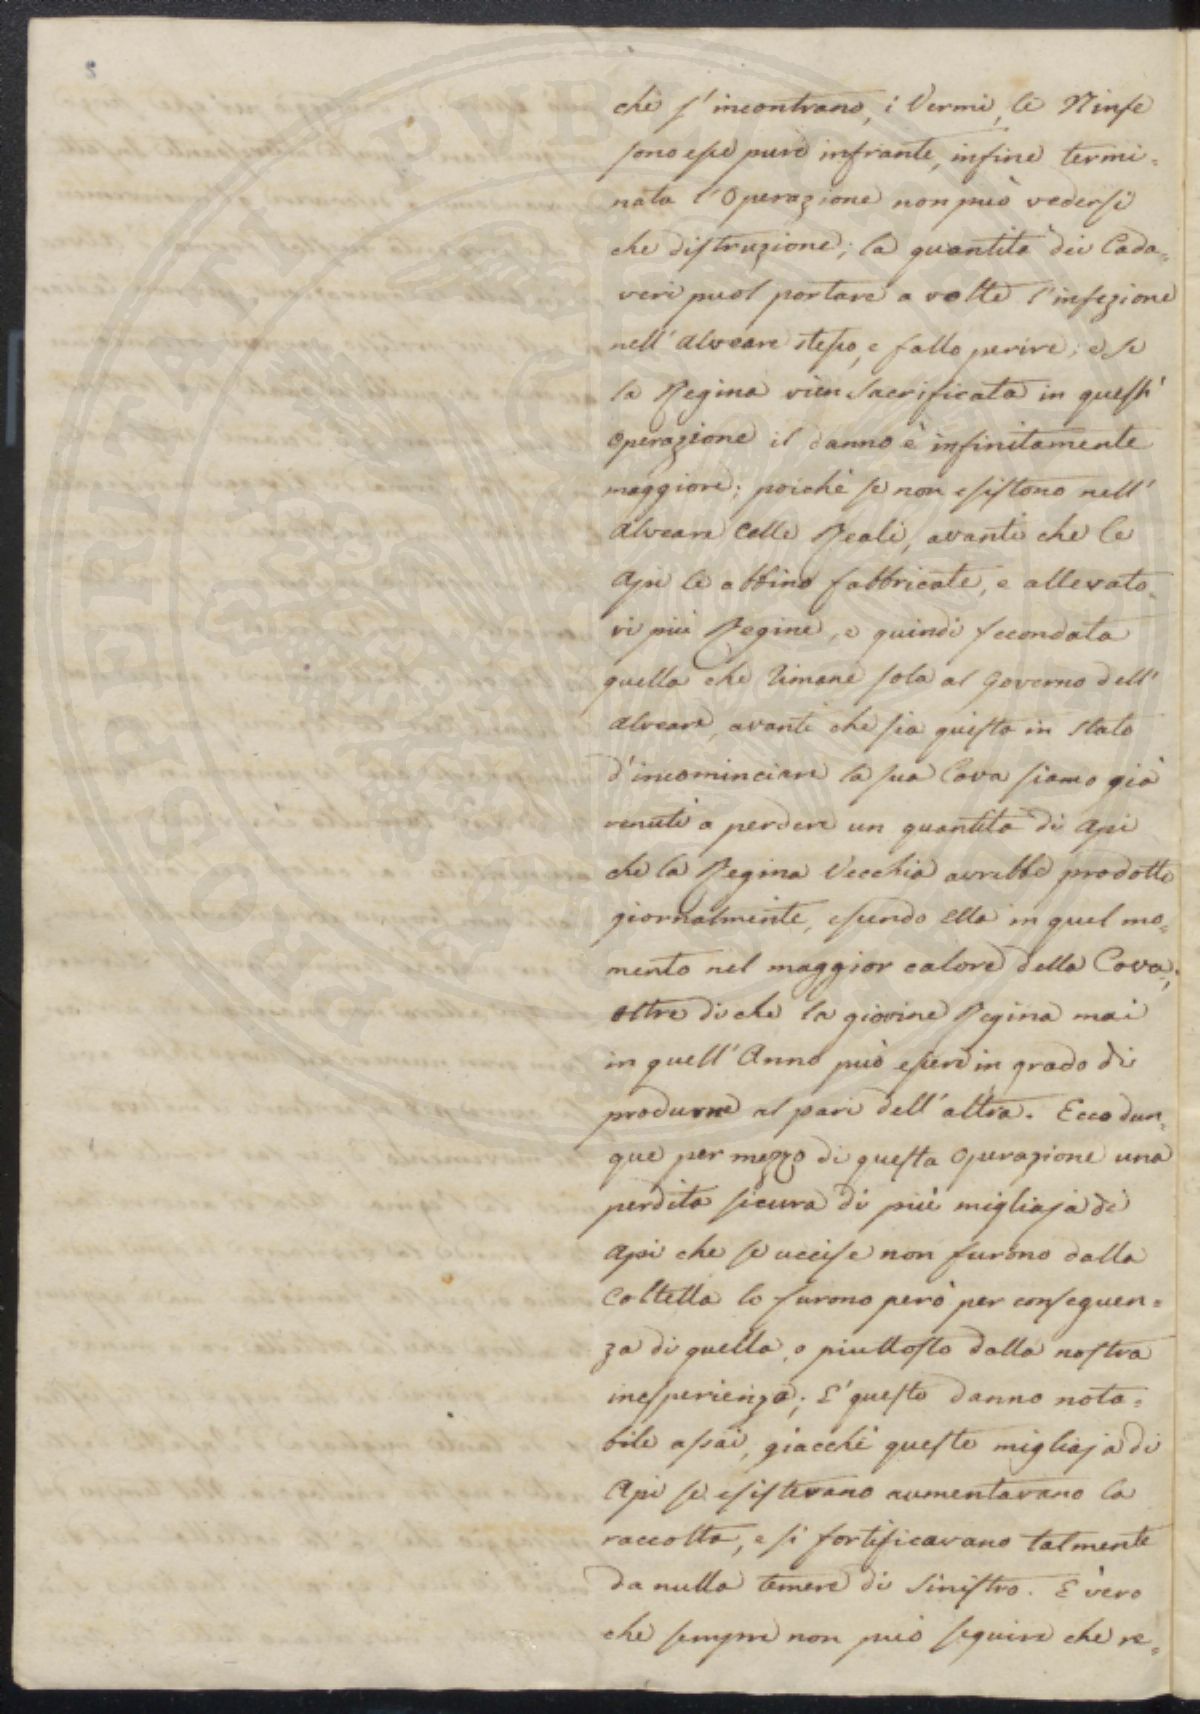 2
che s'incontrano, i Vermi, le Ninfe
sono esse pure infrante, infine termi=
nata l'Operazione non può vedersi
che distruzione; la quantità dei Cada=
veri puol portare a volte l'infezione
nell'alveare stesso, e fallo perire; e se
la Regina vien sacrificata in quest'
operazione il danno è infinitamente
maggiore; poichè se non esistono nell'
alveare Celle Reali, avanti che le
Api le abbino fabbricate, e allevato=
vi più Regine, e quindi fecondata
quella che rimane sola al Governo dell'
alveare, avanti che sia questa in stato
d'incominciare la sua Cova siamo già
venuti a perdere un quantità di Api
che la Regina Vecchia avrebbe prodotte
giornalmente, essendo ella in quel mo=
mento nel maggior calore della Cova;
oltre di che la giovine Regina mai
in quell'Anno può essere in grado di
produrne al pari dell'altra. Ecco dun=
que per mezzo di questa Operazione una
perdita sicura di più migliaja di
Api che se uccise non furono dalla
Coltella lo furono però per conseguen=
za di quella, o piuttosto dalla nostra
inesperienza; E' questo danno nota=
bile assai, giacchè queste migliaja di
Api se esistevano aumentavano la
raccolta, e si fortificavano talmente
da nulla temere di sinistro. E' vero
che sempre non può seguire che re=